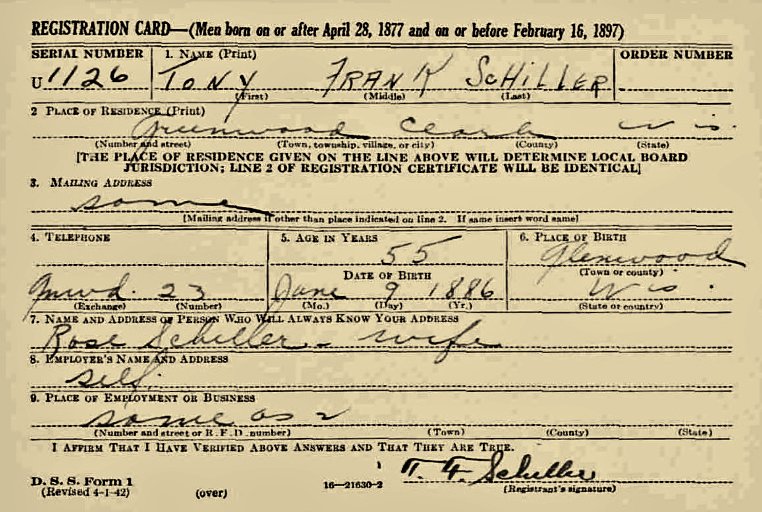 REGISTRATION CARD—(Men born on or after April 28, 1877 and on or before February 16, 1897)
SERIAL NUMBER 1. NAME (Print) ORDER NUMBER
U 1126 TONY FRANK SCHILLER
(First) (Middle) (Last)
2 PLACE OF RESIDENCE (Print)
Greenwood Clark Wis.
(Number and street) (Town, township, village, or city) (County) (State)
[THE PLACE OF RESIDENCE GIVEN ON THE LINE ABOVE WILL DETERMINE LOCAL BOARD
JURISDICTION; LINE 2 OF REGISTRATION CERTIFICATE WILL BE IDENTICAL]
3. MAILING ADDRESS
same
[Mailing address if other than place indicated on line 2. If same insert word same]
4. TELEPHONE 5. AGE IN YEARS 6. PLACE OF BIRTH
55 Glenwood
DATE OF BIRTH (Town or county)
Gnwd. 23 June 9 1886 Wis.
(Exchange) (Number) (Mo.) (Day) (Yr.) (State or country)
7. NAME AND ADDRESS OF PERSON WHO WILL ALWAYS KNOW YOUR ADDRESS
Rose Schiller - wife
8. EMPLOYER'S NAME AND ADDRESS
self.
9. PLACE OF EMPLOYMENT OR BUSINESS
same as 2
(Number and street or R. F. D. number) (Town) (County) (State)
I AFFIRM THAT I HAVE VERIFIED ABOVE ANSWERS AND THAT THEY ARE TRUE.
T. F. Schiller
D. S. S. Form 1
(Revised 4-1-42) (over) 16—21630-2 (Registrant's signature)